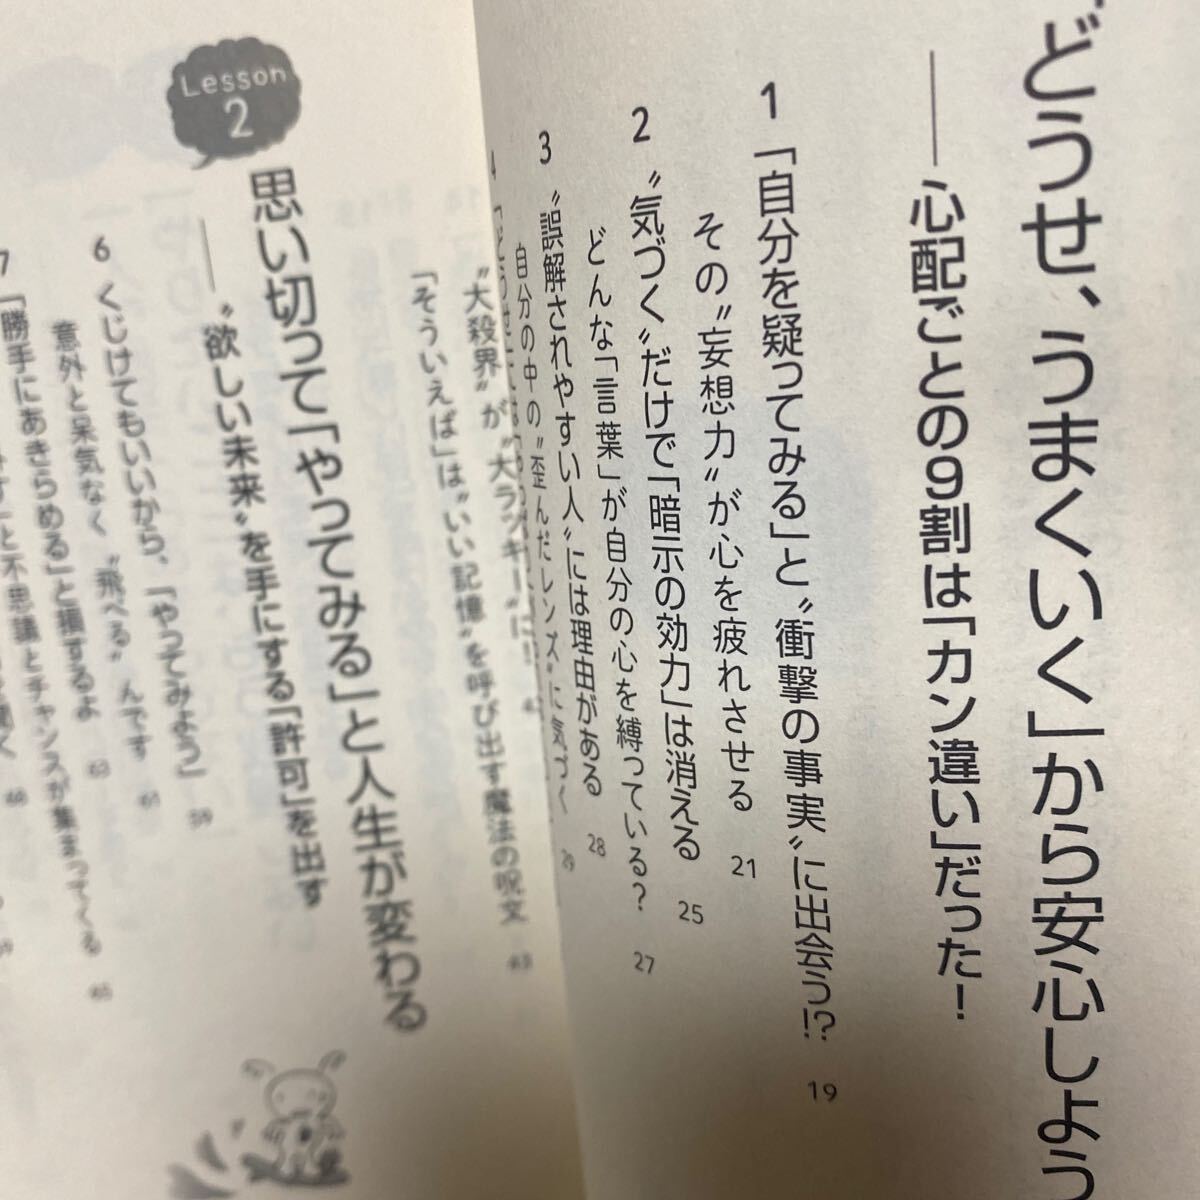 どうせ、うまくいく」から安心しよう
――心配ごとの9割は「カン違い」だった!
1 「自分を疑ってみる」と〝衝撃の事実〟に出会う!? 19
その〝妄想力〟が心を疲れさせる 21
2 〝気づく〟だけで「暗示の効力」は消える 25
どんな「言葉」が自分の心を縛っている? 27
3 〝誤解されやすい人〟には理由がある 28
自分の中の〝歪んだレンズ〟に気づく 29
4
〝大殺界〟が〝大ラッキー〟に!
「そういえば」は〝いい記憶〟を呼び出す魔法の呪文 43
Lesson
2
思い切って「やってみる」と人生が変わる
――〝欲しい未来〟を手にする「許可」を出す
6 くじけてもいいから、「やってみよう」 59
意外と呆気なく〝飛べる〟んです 61
7 「勝手にあきらめる」と損するよ 63
と不思議とチャンスが集まってくる 65